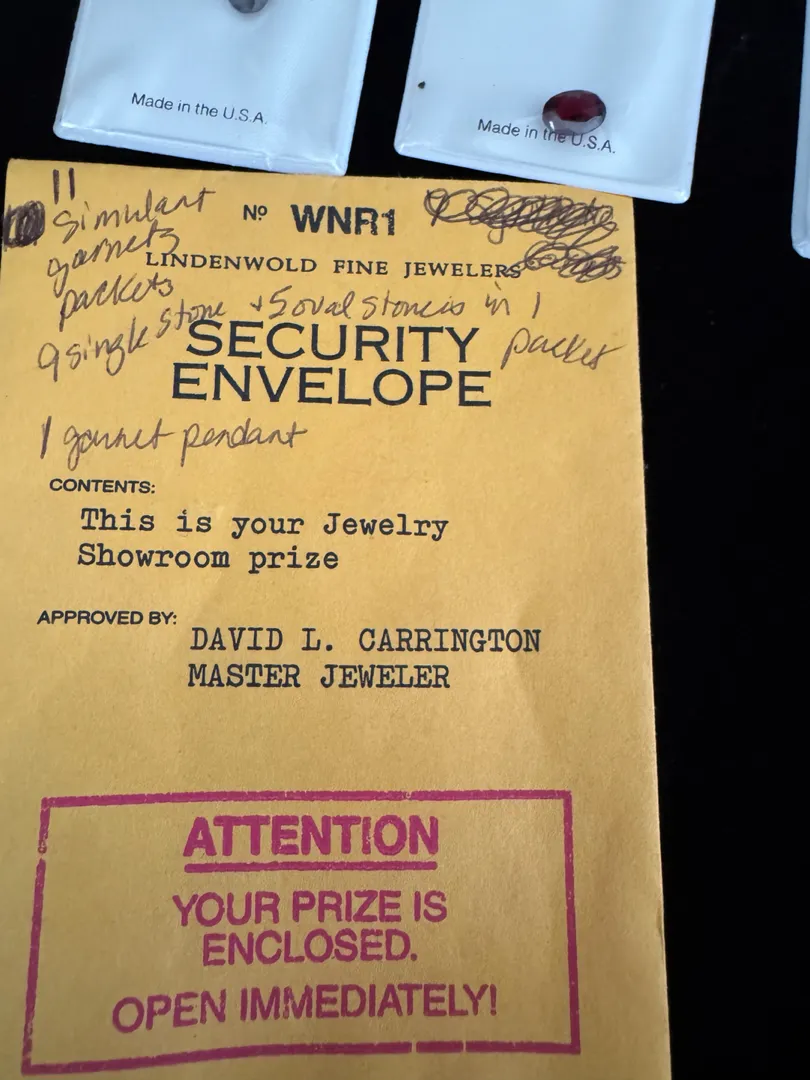 Made in the U.S.A.
Made in the U.S.A.
11
simulant
garnets
packets
Nº WNR1
LINDENWOLD FINE JEWELERS
9 single stone + 5 oval stones in 1
packet
SECURITY
ENVELOPE
1 garnet pendant
CONTENTS:
This is your Jewelry
Showroom prize
APPROVED BY:
DAVID L. CARRINGTON
MASTER JEWELER
ATTENTION
YOUR PRIZE IS
ENCLOSED.
OPEN IMMEDIATELY!